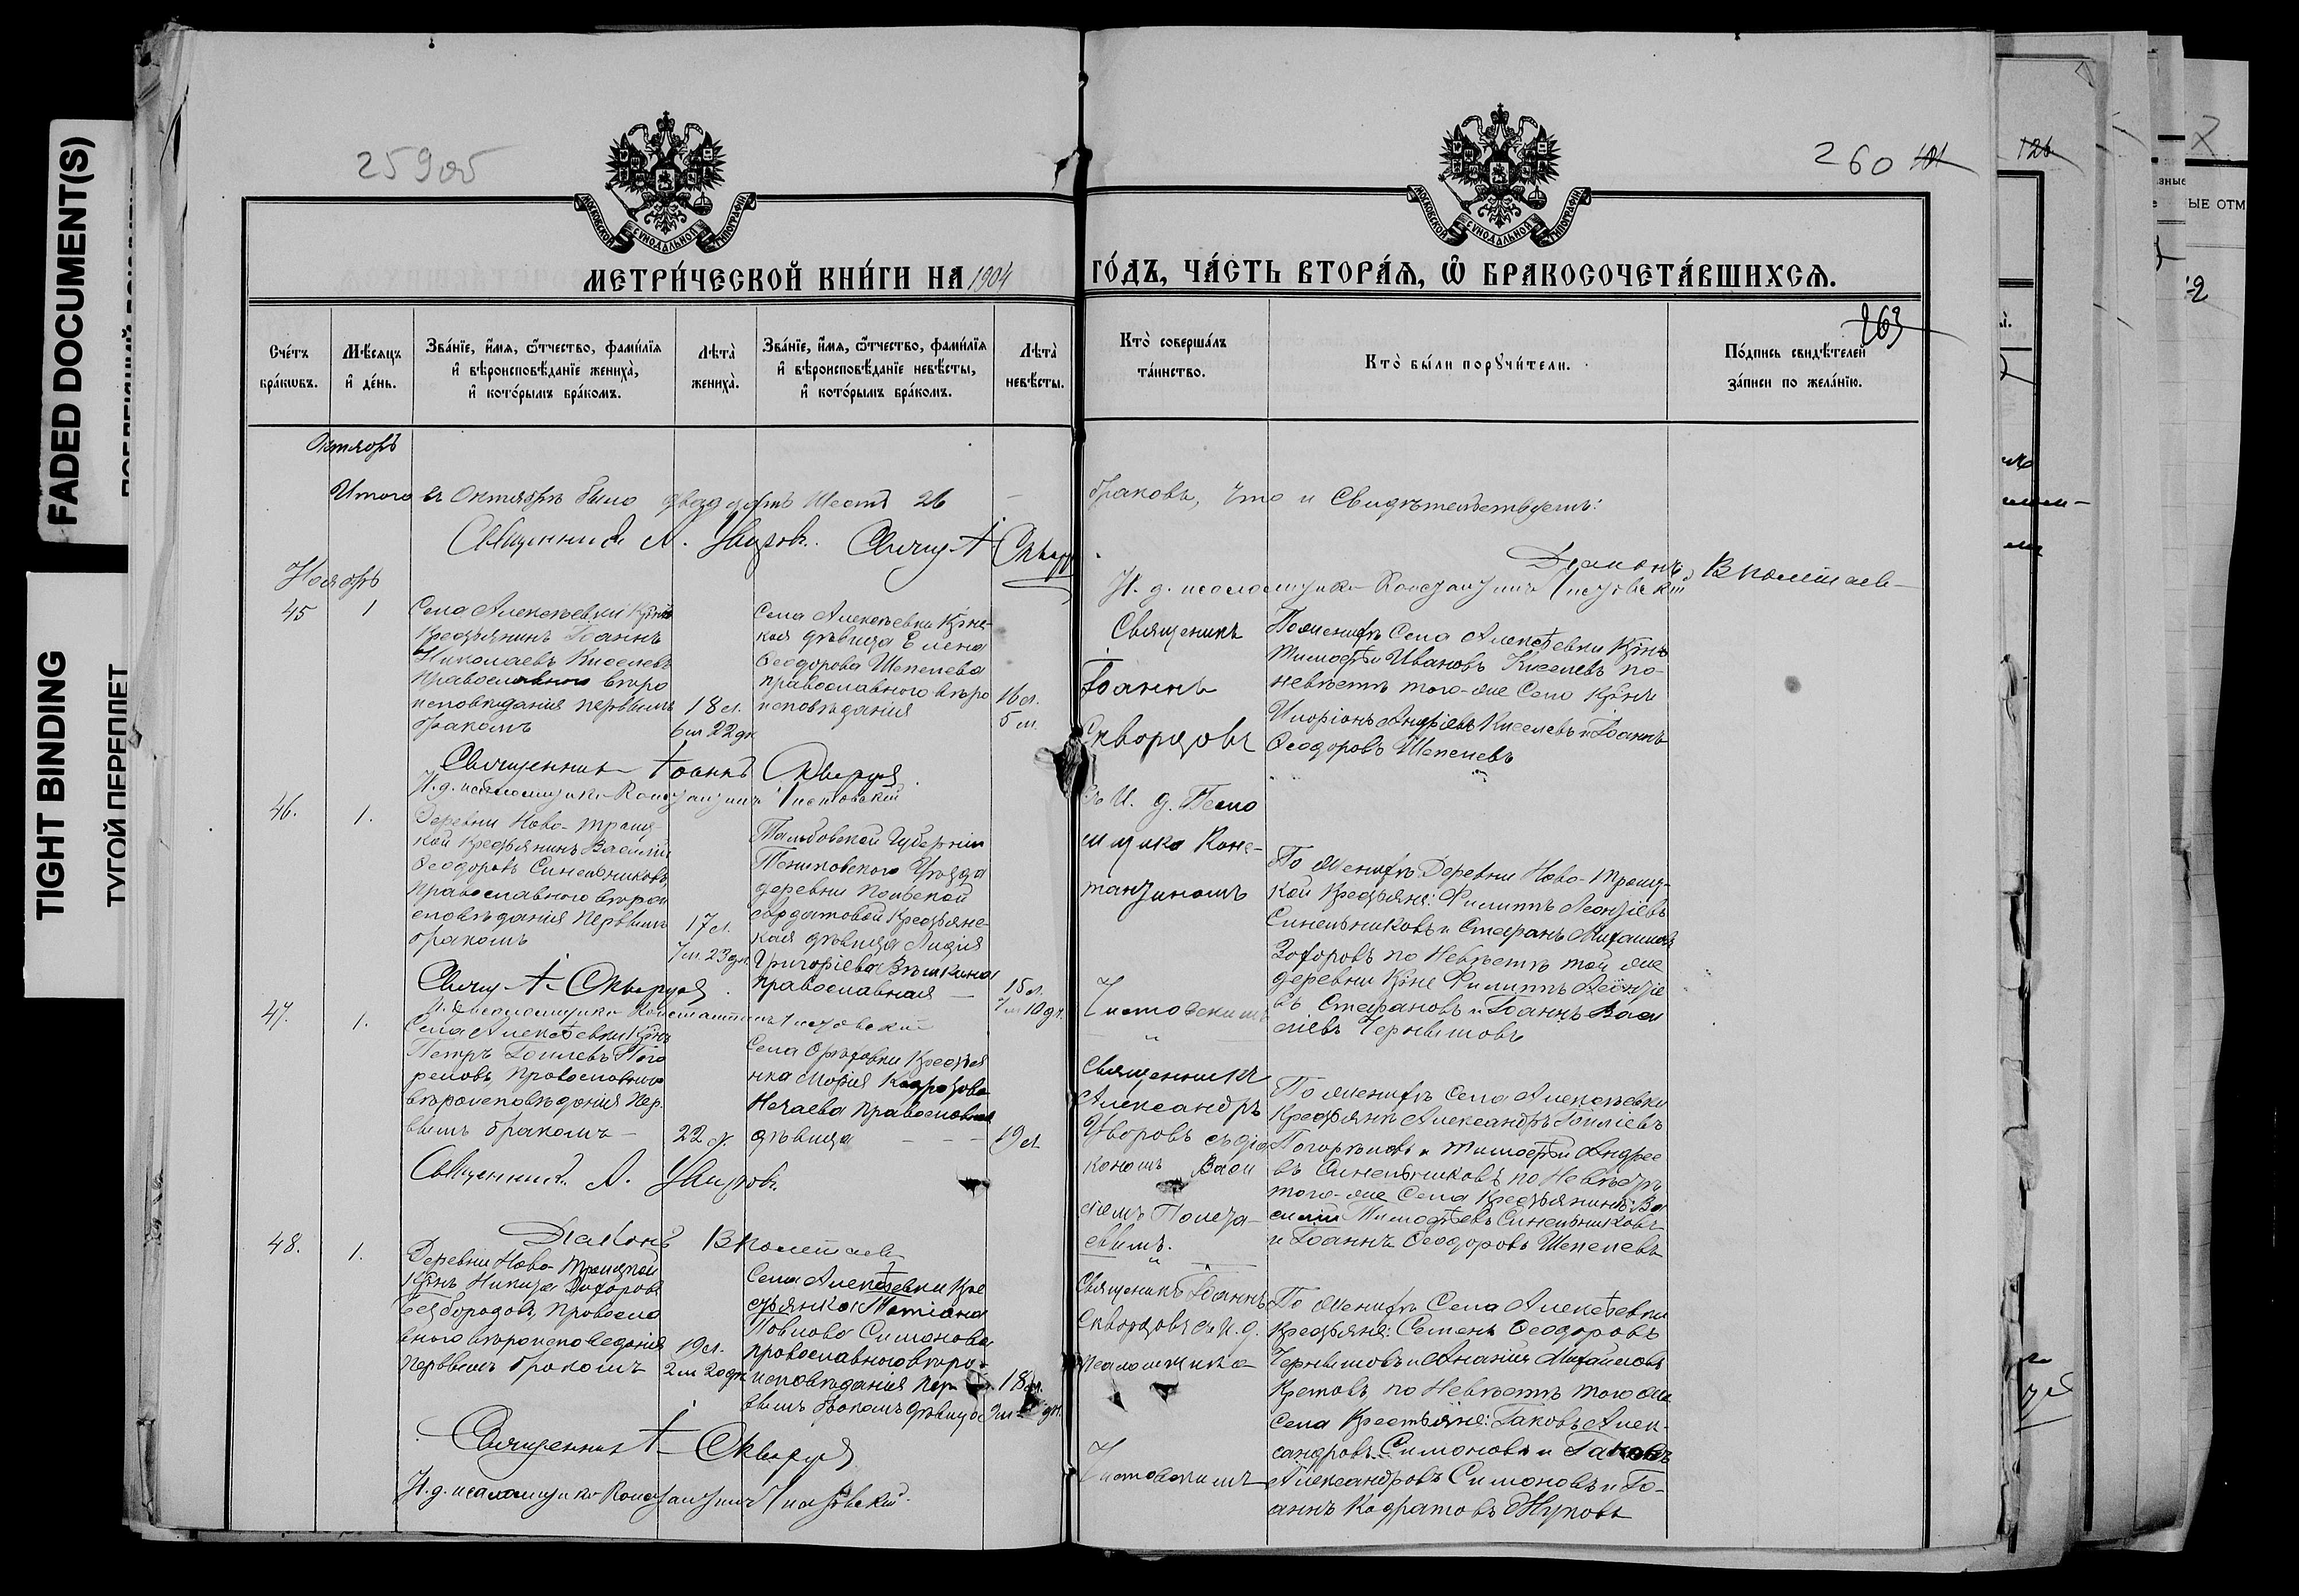 FADED DOCUMENT(S)
TIGHT BINDING
ТУГОЙ ПЕРЕПЛЕТ
259об
260 101
126
МОСКОВСКОЙ СѴНОДАЛЬНОЙ ТИПОГРАФІИ
МОСКОВСКОЙ СѴНОДАЛЬНОЙ ТИПОГРАФІИ
МЕТРИ́ЧЕСКОЙ КНИ́ГИ НА 1904 ГО́ДЪ, ЧА́СТЬ ВТОРА́Я, Ѽ БРАКОСОЧЕТА́ВШИХСЯ.
263
Сче́тъ
бра́кѡвъ.
Мѣ́сяцъ
и҆ де́нь.
Зва́нїе, и҆́мя, ѻ҆́тчество, фами́лїя
и҆ вѣроисповѣ́данїе жениха̀,
и҆ кото́рымъ бра́комъ.
Лѣта̀
жениха̀.
Зва́нїе, и҆́мя, ѻ҆́тчество, фами́лїя
и҆ вѣроисповѣ́данїе невѣ́сты,
и҆ кото́рымъ бра́комъ.
Лѣта̀
невѣ́сты.
Кто̀ соверша́лъ
та́инство.
Кто̀ бы́ли порꙋчи́тели.
По́дпись свидѣ́телей
за́писи по жела́нїю.
Октябрь
Итого въ Октябрѣ было двадцать шесть 26 — браковъ, что и Свидѣтельствуемъ:
Священникъ А. Уваровъ. Священ. І. Скворц
Діаконъ В Полетаев
И. д. псаломщика Константинъ Чистовский
Ноябрь
45
1
Села Алексѣевки Крнъ
Крестьянинъ Іоаннъ
Николаевъ Киселевъ
православного вѣро
исповѣдания первымъ
бракомъ
18 л.
6 м 22 дн
Села Алексѣевки Крне-
кая дѣвица Елена
Ѳеодорова Шепелева
православного вѣро
исповѣдания
16 л.
5 м.
Священикъ
Іоаннъ
Скворцовъ
По женихѣ Села Алексѣевки Крнъ
Тимоѳѣй Ивановъ Киселевъ по-
невѣстѣ того-же Села Крне
Иларіонъ Андріевъ Киселевъ и Іоаннъ
Ѳеодоровъ Шепелевъ
Священникъ Іоаннъ Скворцов
И. д. псаломщика Константинъ Чистовский
46.
1.
Деревни Ново-Троиц-
кой Крестьянинъ Василій
Ѳеодоровъ Синельниковъ
Православного вѣрои
сповѣдания Первымъ
бракомъ
17 л.
7 м 23 дн.
Тамбовской Губерніи
Темниковского Уѣзда
деревни
Крестьянс-
кая дѣвица Лидія
Григоріева
Православная —
15 л.
7 м 10 дн.
съ И. д. Псало
мщика Конс-
тантиномъ
Чистовскимъ
По женихѣ Деревни Ново-Троиц-
кой Крестьяне: Филиппъ Леонтіевъ
Синельниковъ и Стефанъ Михаиловъ
по Невѣстѣ той же
деревни Крне Филиппъ Леонтіе
въ Стефановъ и Іоаннъ Васи
ліевъ Чернышовъ
Священ. І. Скворцов
И. д. псаломщика Константинъ Чистовский
47.
1.
Села Алексѣевки Крнъ
Петръ Іоилевъ Пого
реловъ, Православного
вѣроисповѣдания Пер
вымъ бракомъ —
22 л.
Села Орѣховки Крестья
нка Марія
Нечаева православная
дѣвица — — —
19 л
Священникъ
Александръ
Уваровъ съ діа
кономъ Васи
ліемъ Полета-
евымъ.
По женихѣ Села Алексѣевки
Крестьяне Александръ Іоиліевъ
Погорѣловъ и Тимоѳей Андрее
въ Синельниковъ по Невѣстѣ
того-же Села Крестьянинъ Ва
силій Тимоѳѣевъ Синельниковъ
и Іоаннъ Ѳеодоровъ Шепелевъ
Священникъ А. Уваровъ.
Діаконъ В Полетаев
48.
1.
Деревни Ново-Троицкой
Крнъ Никита
Безбородовъ, Правосла
вного вѣроисповедания
Первымъ бракомъ
19 л.
2 м 20 дн
Села Алексѣевки Кре
стьянка Татіана
Павлова Симонова
православного вѣро-
исповѣдания пер
вымъ бракомъ дѣвица
18 л.
Священикъ Іоаннъ
Скворцовъ съ И. д.
псаломщика
Чистовскимъ
По женихѣ Села Алексѣевки
Крестьяне: Семенъ Ѳеодоровъ
Чернышовъ и Ананія Михайловъ
Кретовъ, по Невѣстѣ того же
села Крестьяне: Іаковъ Алек-
сандровъ Симоновъ и Іаковъ
Александровъ Симоновъ и Іо-
аннъ Кодратовъ Жуковъ
Священник І. Скворцов
И. д. псаломщика Константинъ Чистовский.